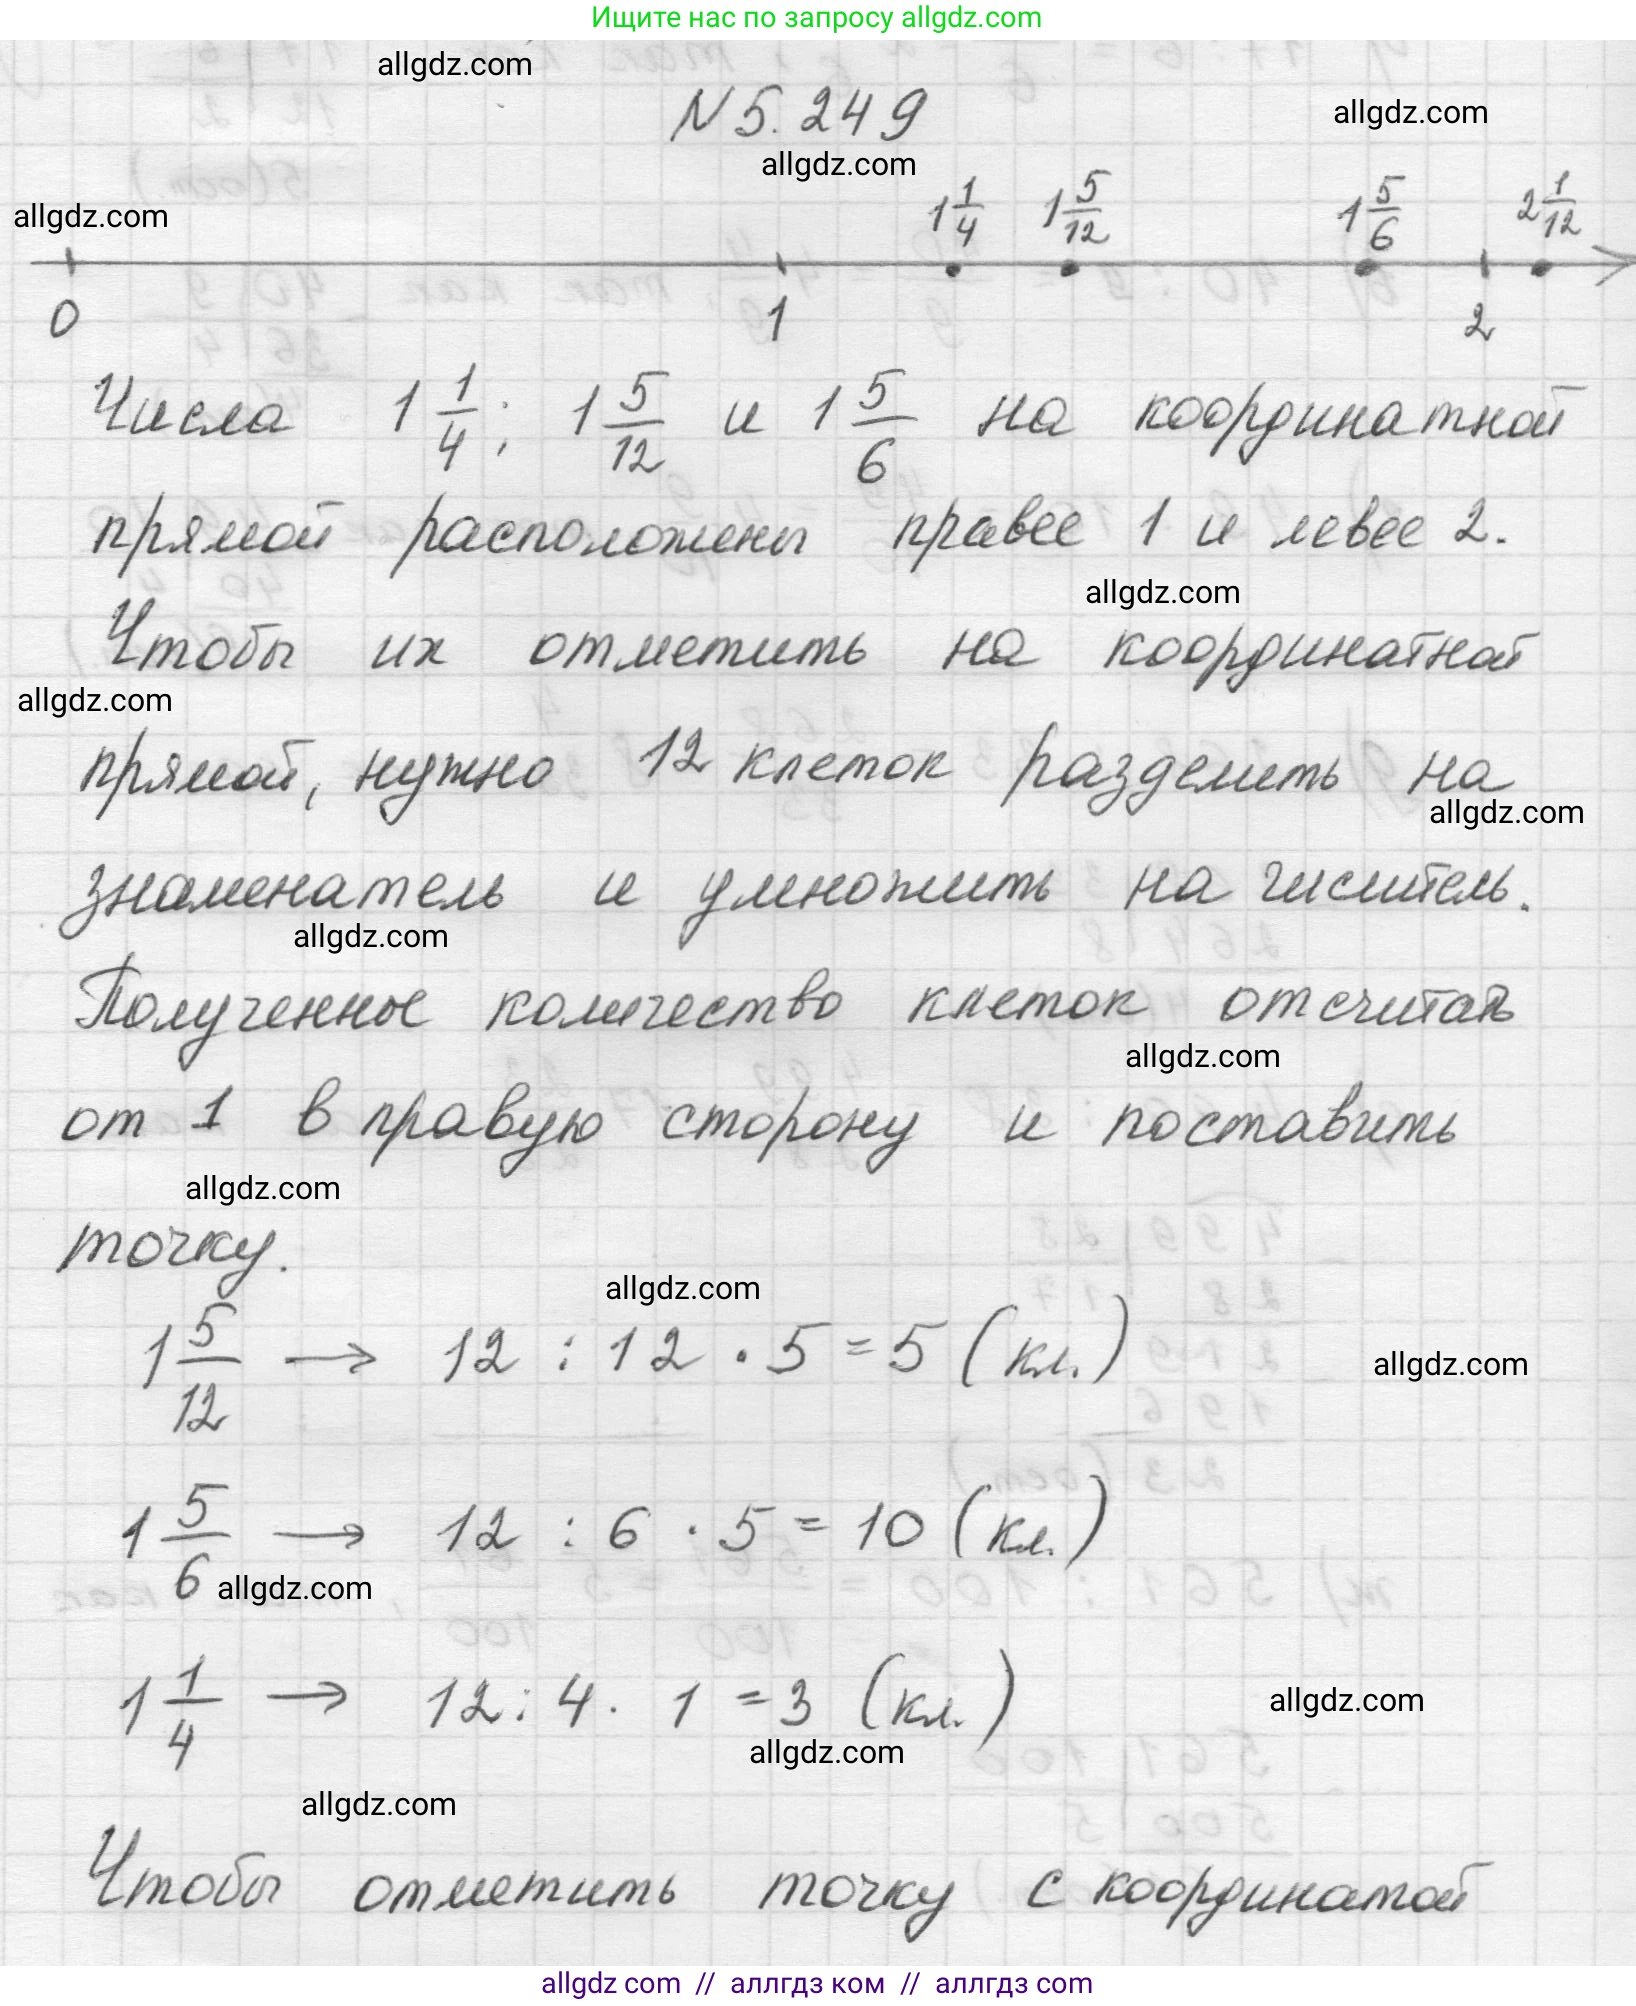 Ищите нас по запросу allgdz.com
allgdz.com
N 5.249
allgdz.com
allgdz.com
allgdz.com
1 1/4 1 5/12 1 5/6 2 1/12
0 1 2
Числа 1 1/4; 1 5/12 и 1 5/6 на координатной
прямой расположены правее 1 и левее 2.
allgdz.com
Чтобы их отметить на координатной
allgdz.com
прямой, нужно 12 клеток разделить на
allgdz.com
знаменатель и умножить на числитель.
allgdz.com
Полученное количество клеток отсчитать
allgdz.com
от 1 в правую сторону и поставить
allgdz.com
точку.
allgdz.com
1 5/12 → 12 : 12 · 5 = 5 (кл.)
allgdz.com
1 5/6 → 12 : 6 · 5 = 10 (кл.)
allgdz.com
1 1/4 → 12 : 4 · 1 = 3 (кл.)
allgdz.com
allgdz.com
allgdz.com
Чтобы отметить точку с координатой
allgdz com // аллгдз ком // аллгдз com